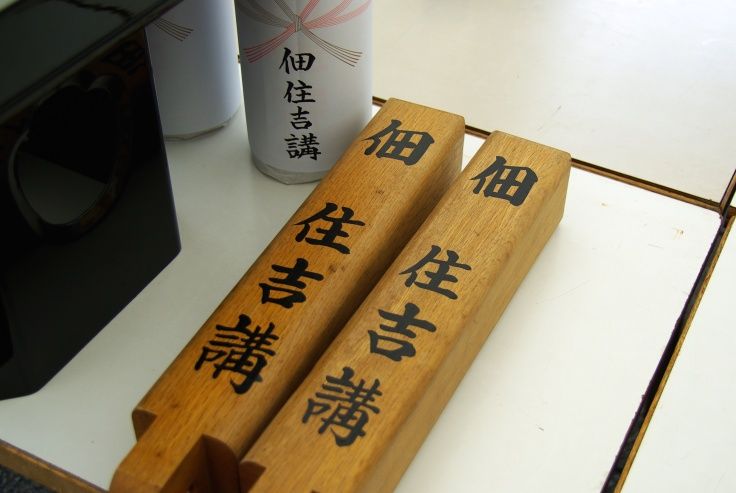 佃住吉講
佃住吉講
佃住吉講